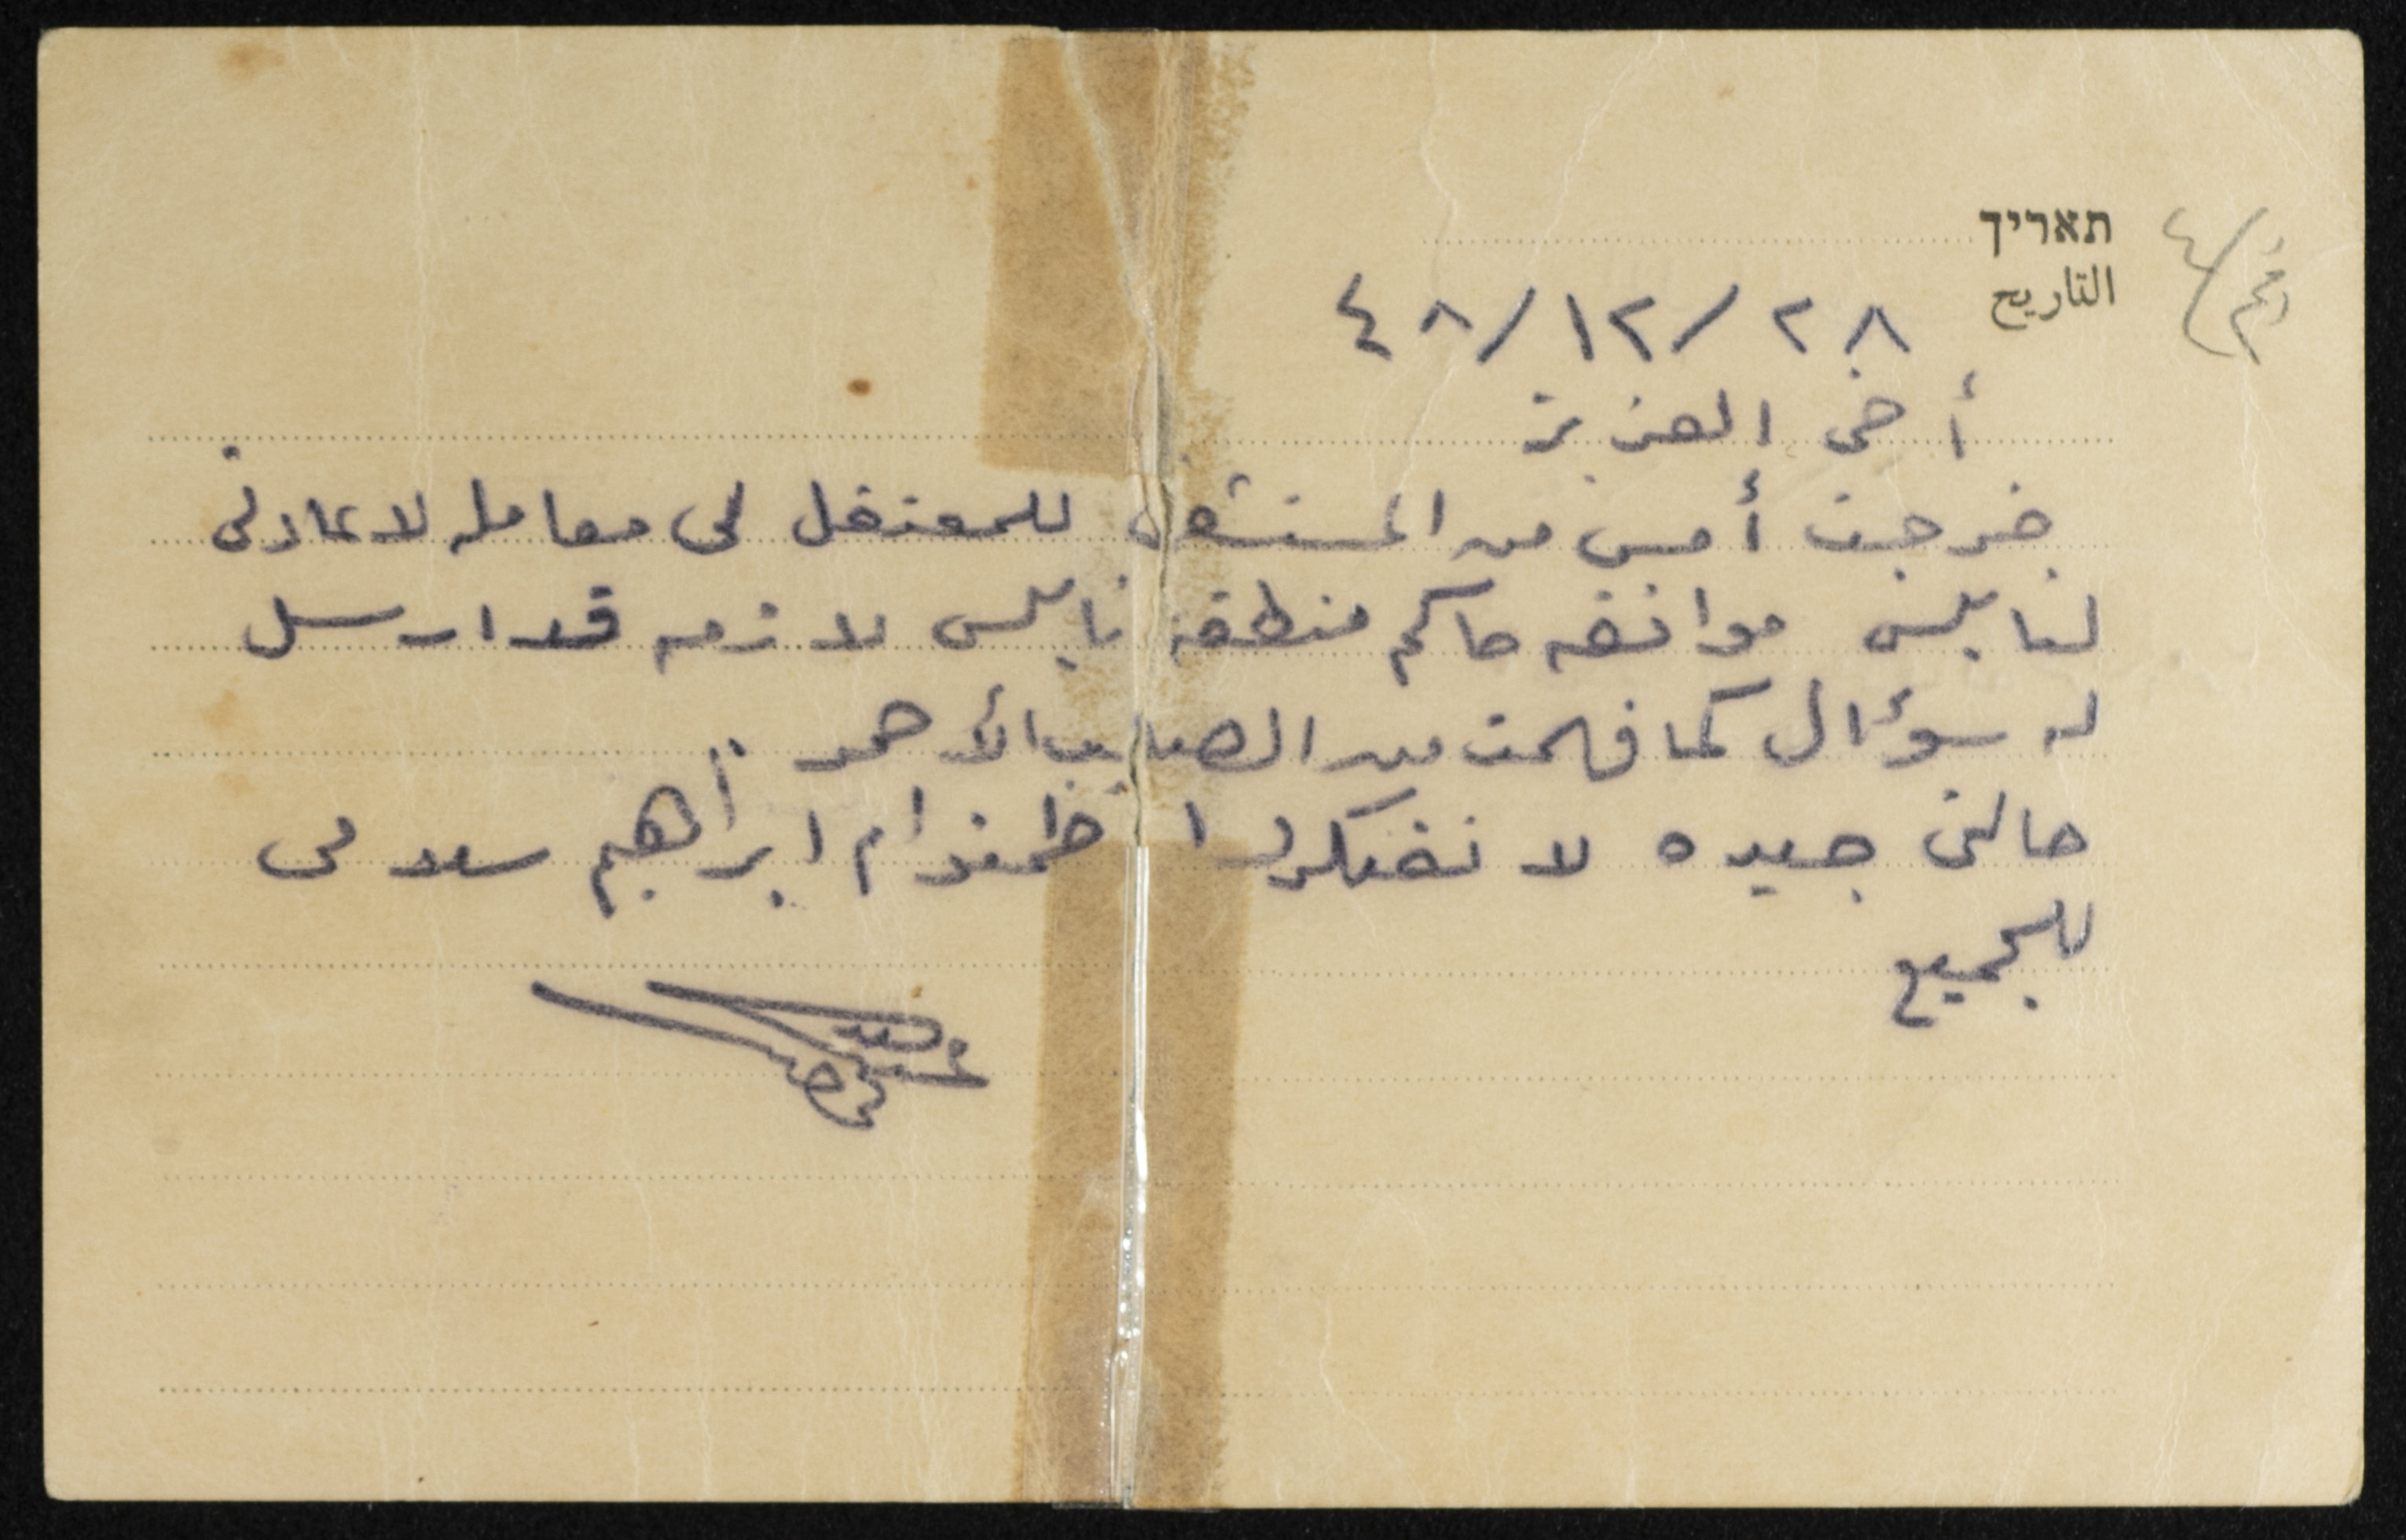 תאריך
التاريخ
رقم/٤
٤٨/١٢/٢٨
أخي العزيز
خرجت أمس من المستشفى للمعتقل لي معامله لاعادتي
لنابلس موافقه حاكم منطقة نابلس لازمه قد ارسل
له سؤال كما فهمت من الصليب الأحمر
حالتي جيده لا تفتكروا طمنوا ام ابراهيم سلامي
للجميع